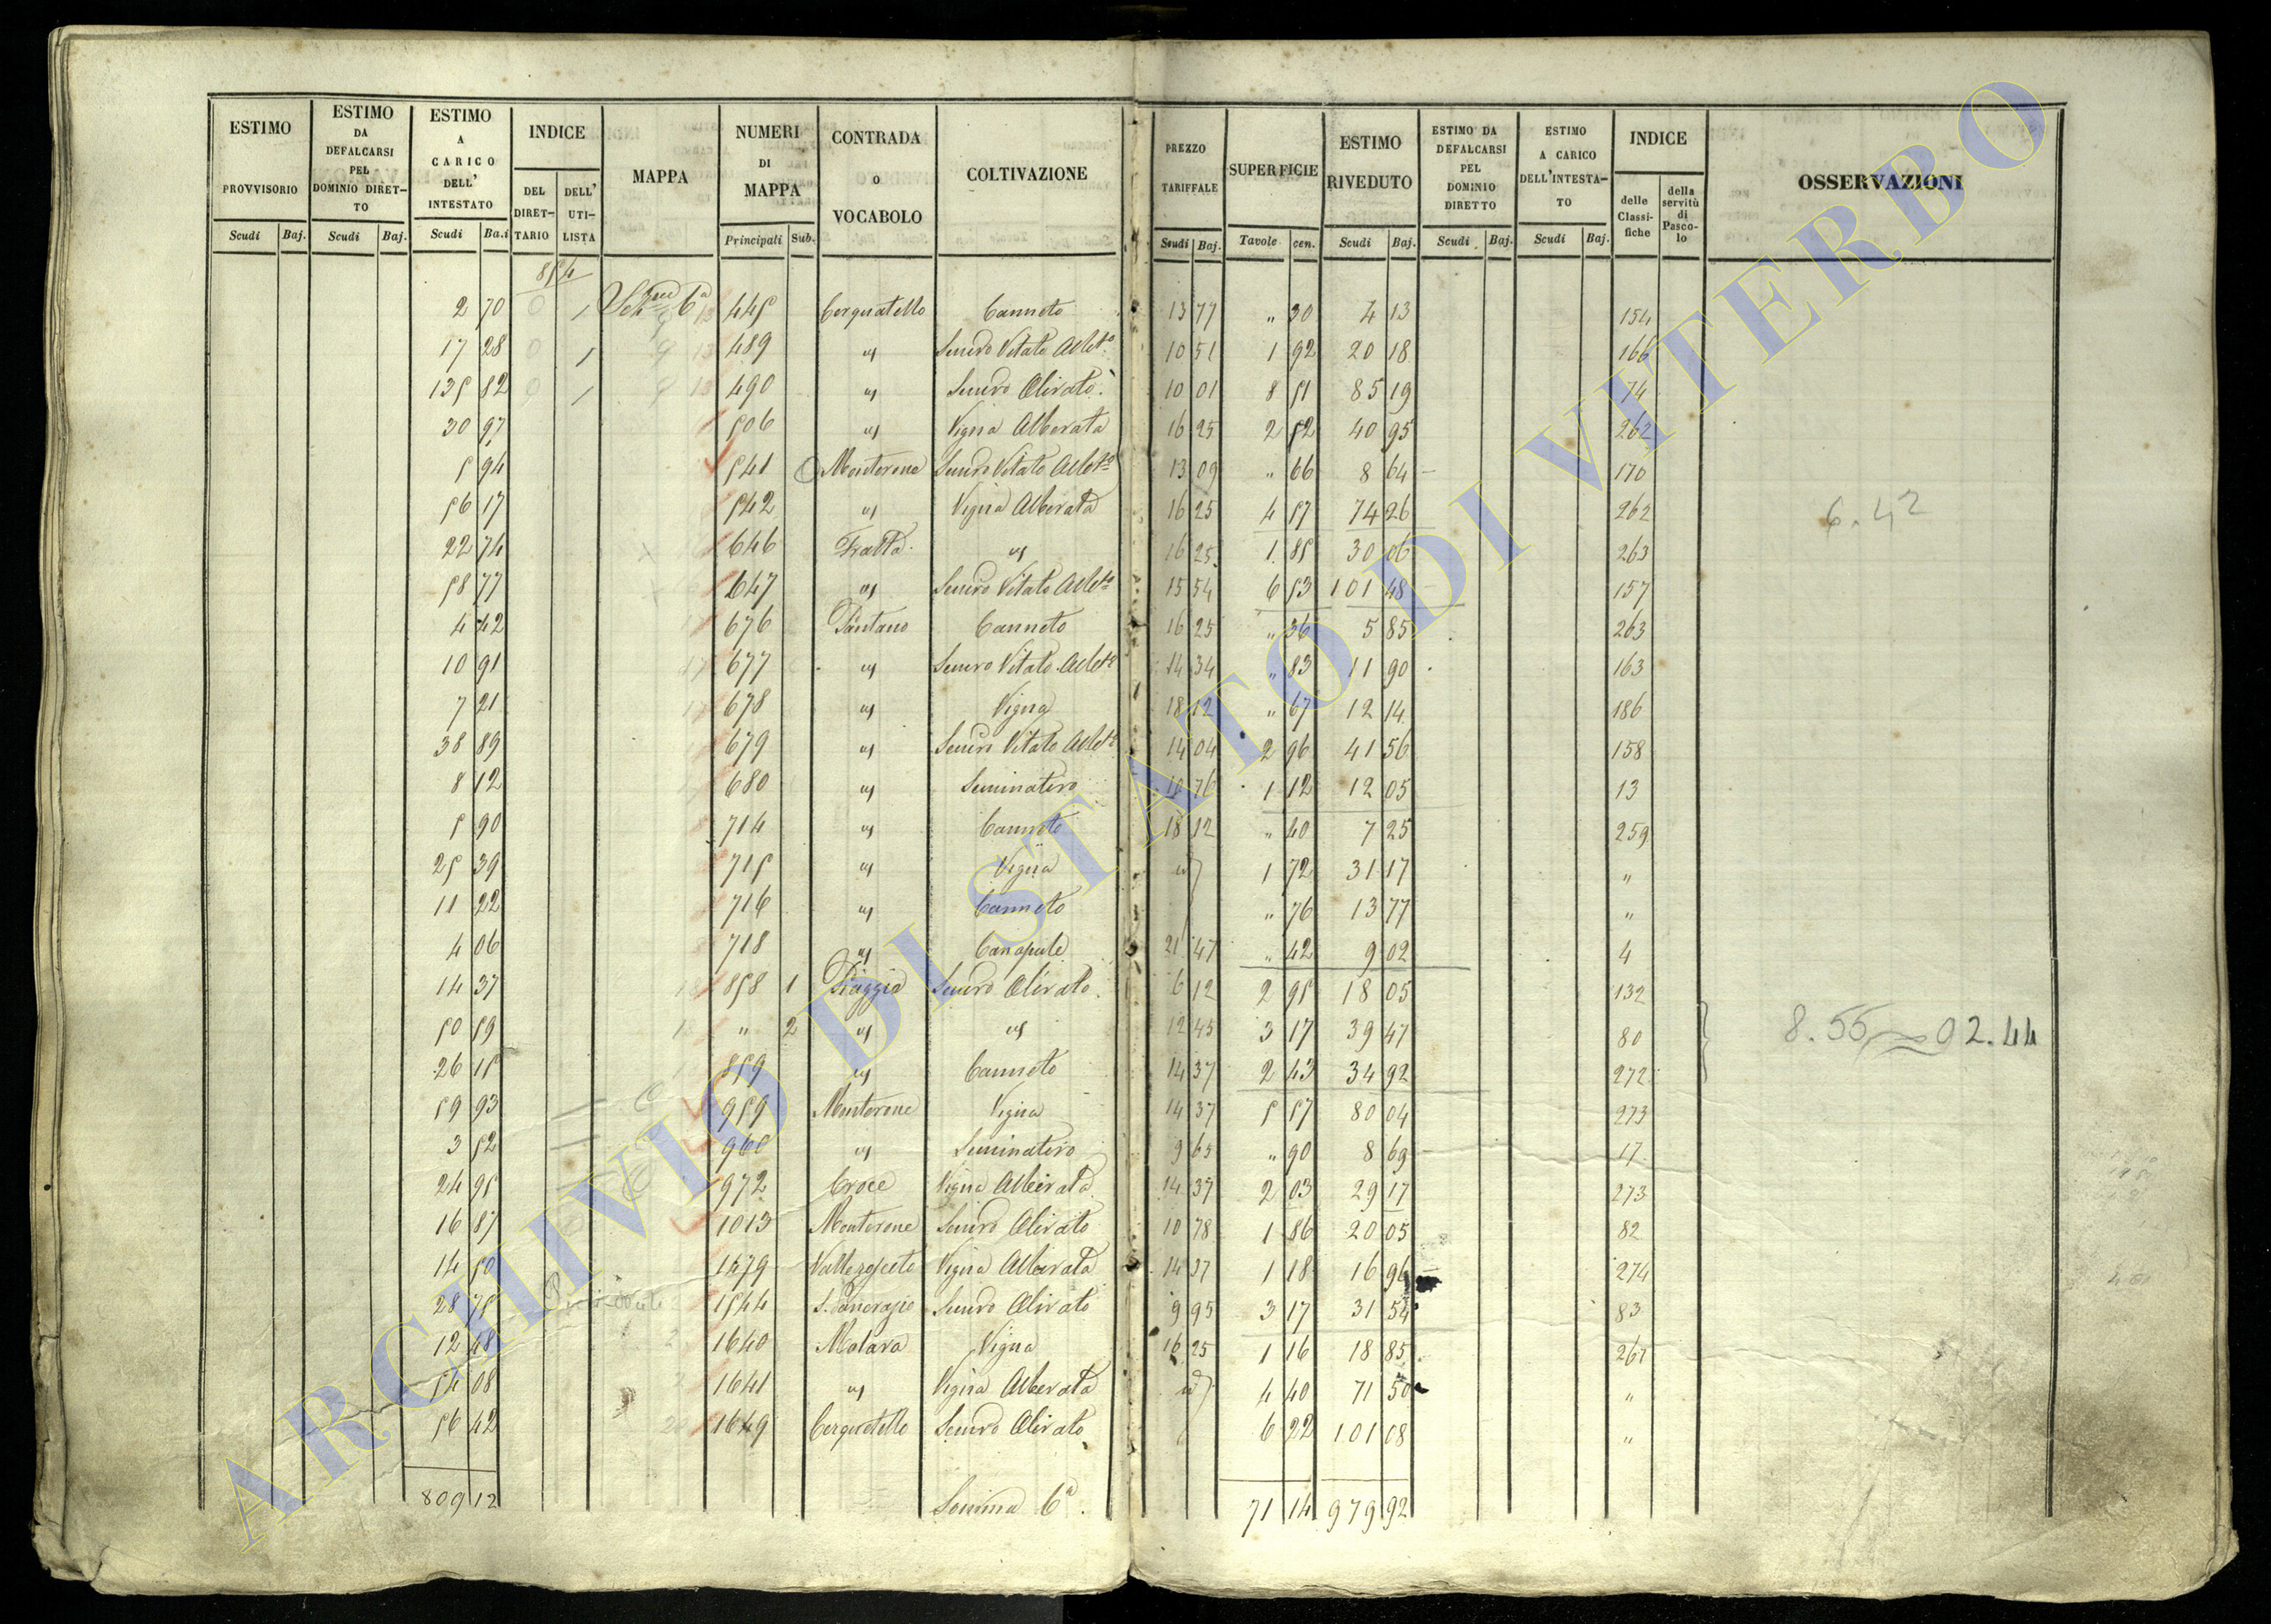 ESTIMO PROVVISORIO
ESTIMO DA DEFALCARSI PEL DOMINIO DIRET-TO
ESTIMO A CARICO DELL' INTESTATO
INDICE
DEL DIRET-TARIO
DELL' UTI-LISTA
MAPPA
NUMERI DI MAPPA
CONTRADA O VOCABOLO
COLTIVAZIONE
PREZZO TARIFFALE
SUPERFICIE
ESTIMO RIVEDUTO
ESTIMO DA DEFALCARSI PEL DOMINIO DIRETTO
ESTIMO A CARICO DELL'INTESTA-TO
INDICE
delle Classi-fiche
della servitù di Pasco-lo
OSSERVAZIONI
Scudi Baj. Scudi Baj. Scudi Ba.i Principali Sub. Scudi Baj. Tavole cen. Scudi Baj. Scudi Baj. Scudi Baj.
854
2 70 1 6a 445 Cerquatello Canneto 13 77 " 30 4 13 154
17 28 1 489 " 10 51 1 92 20 18 166
135 82 1 490 " Olivato 10 01 8 51 85 19 74
30 97 506 " Vigna Alberata 16 25 2 52 40 95 262
5 94 541 Monterone 13 09 " 66 8 64 170
56 17 542 " Vigna Alberata 16 25 4 57 74 26 262
6.42
22 74 646 Fratta " 16 25 1 85 30 06 263
58 77 647 " 15 54 6 53 101 48 157
4 42 676 Pantano Canneto 16 25 " 36 5 85 263
10 91 677 " 14 34 " 83 11 90 163
7 21 678 " Vigna 18 12 " 67 12 14 186
38 89 679 " 14 04 2 96 41 56 158
8 12 680 " Seminativo 10 76 1 12 12 05 13
5 90 714 " Canneto 18 12 " 40 7 25 259
25 39 715 " Vigna 1 72 31 17 "
11 22 716 " Canneto " 76 13 77 "
4 06 718 " Canapule 21 47 " 42 9 02 4
14 37 858 1 Piaggia Olivato 6 12 2 95 18 05 132
50 59 " 2 " " 12 45 3 17 39 47 80
8.55 02.44
26 15 859 " Canneto 14 37 2 43 34 92 272
59 93 959 Monterone Vigna 14 37 5 57 80 04 273
3 52 960 " Seminativo 9 65 " 90 8 69 17
24 95 972 Croce Vigna Alberata 14 37 2 03 29 17 273
16 87 1013 Monterone Olivato 10 78 1 86 20 05 82
14 50 1479 Vigna Alberata 14 37 1 18 16 96 274
28 75 1544 Olivato 9 95 3 17 31 54 83
12 48 1640 Vigna 16 25 1 16 18 85 261
54 08 1641 " Vigna Alberata 4 40 71 50 "
56 42 1649 Cerquetello Olivato 6 22 101 08 "
809 12 Somma 6a. 71 14 979 92
ARCHIVIO DI STATO DI VITERBO